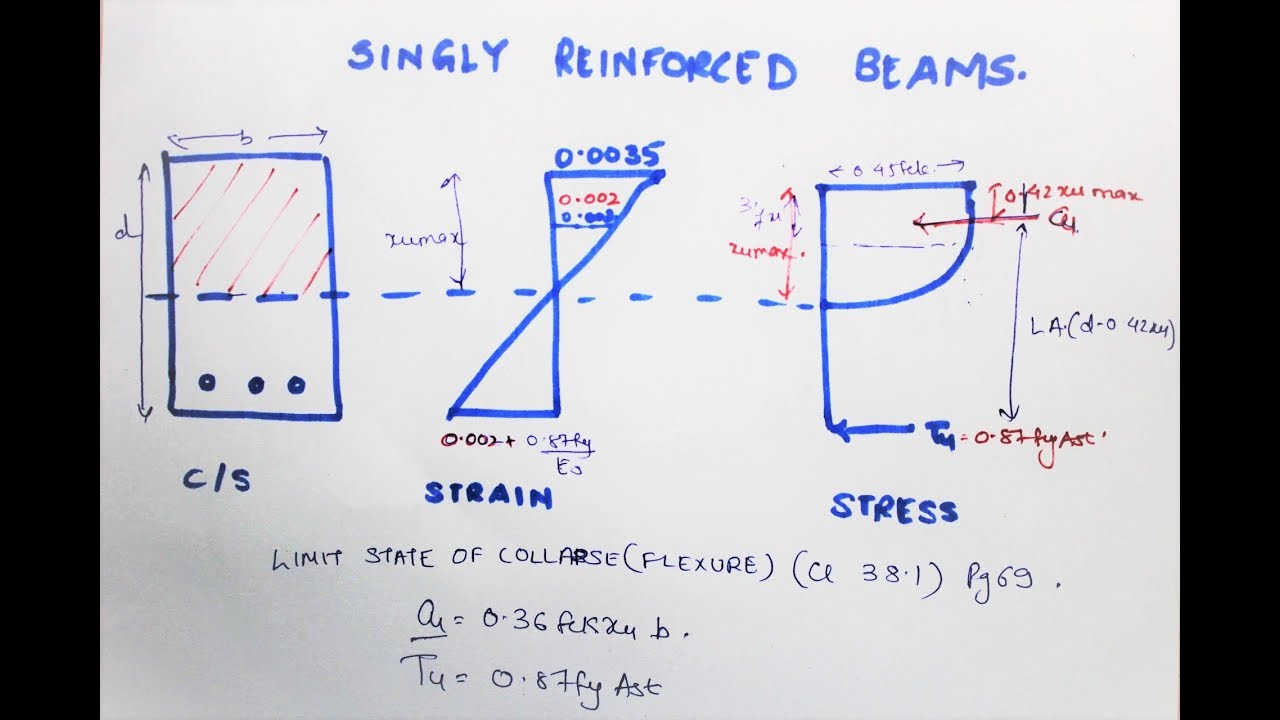 SINGLY REINFORCED BEAMS.
b
d
xumax
0.0035
0.002
0.002
0.002 + 0.87fy
Es
0.45fck
3/7 xu
xumax.
0.42 xu max
Cu
L.A.(d-0.42xu)
Tu = 0.87fyAst
C/S
STRAIN
STRESS
LIMIT STATE OF COLLAPSE (FLEXURE) (Cl 38.1) Pg 69.
Cu = 0.36 fck xu b.
Tu = 0.87fy Ast